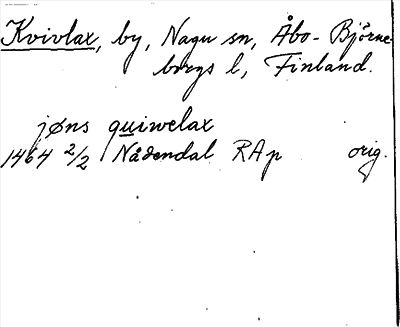 Kvivlax, by, Nagu sn, Åbo-Björne
borgs l, Finland.
jøns quiwelax
1464 2/2 Nådendal RAp orig.